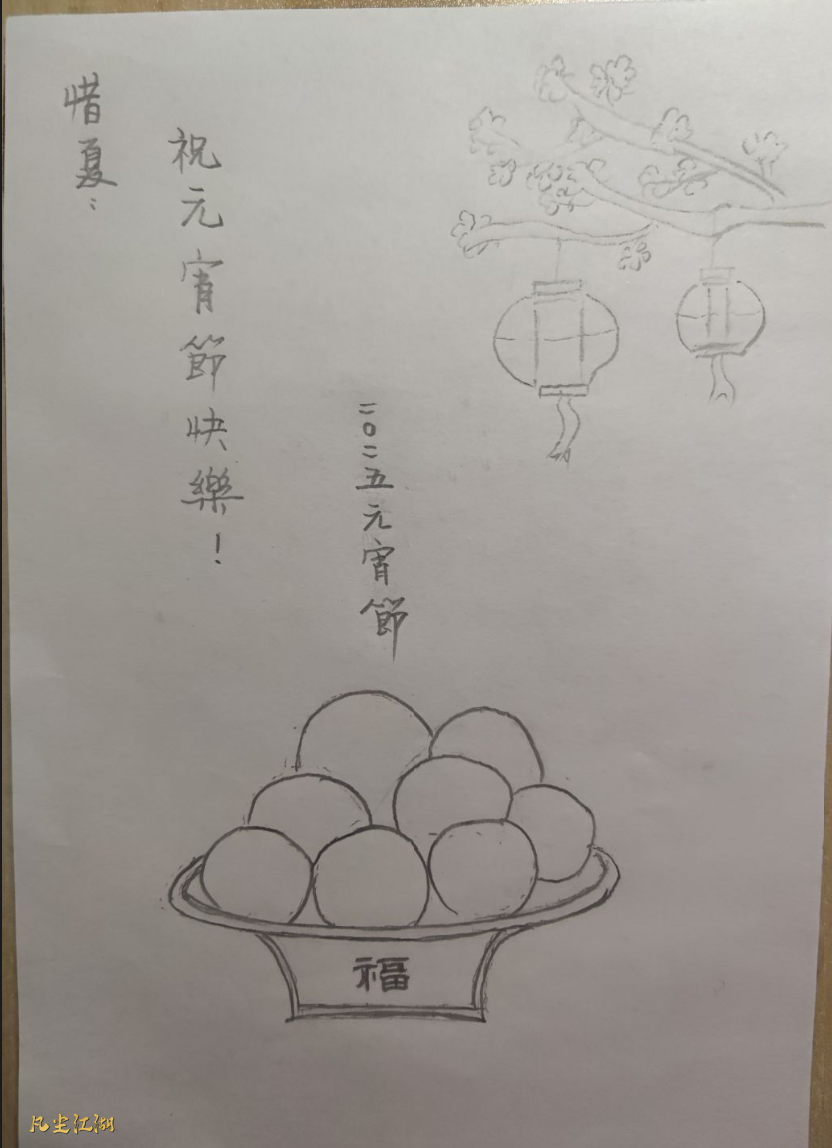 惜夏：
祝元宵節快樂！
二〇二五元宵節
福
凡尘江湖